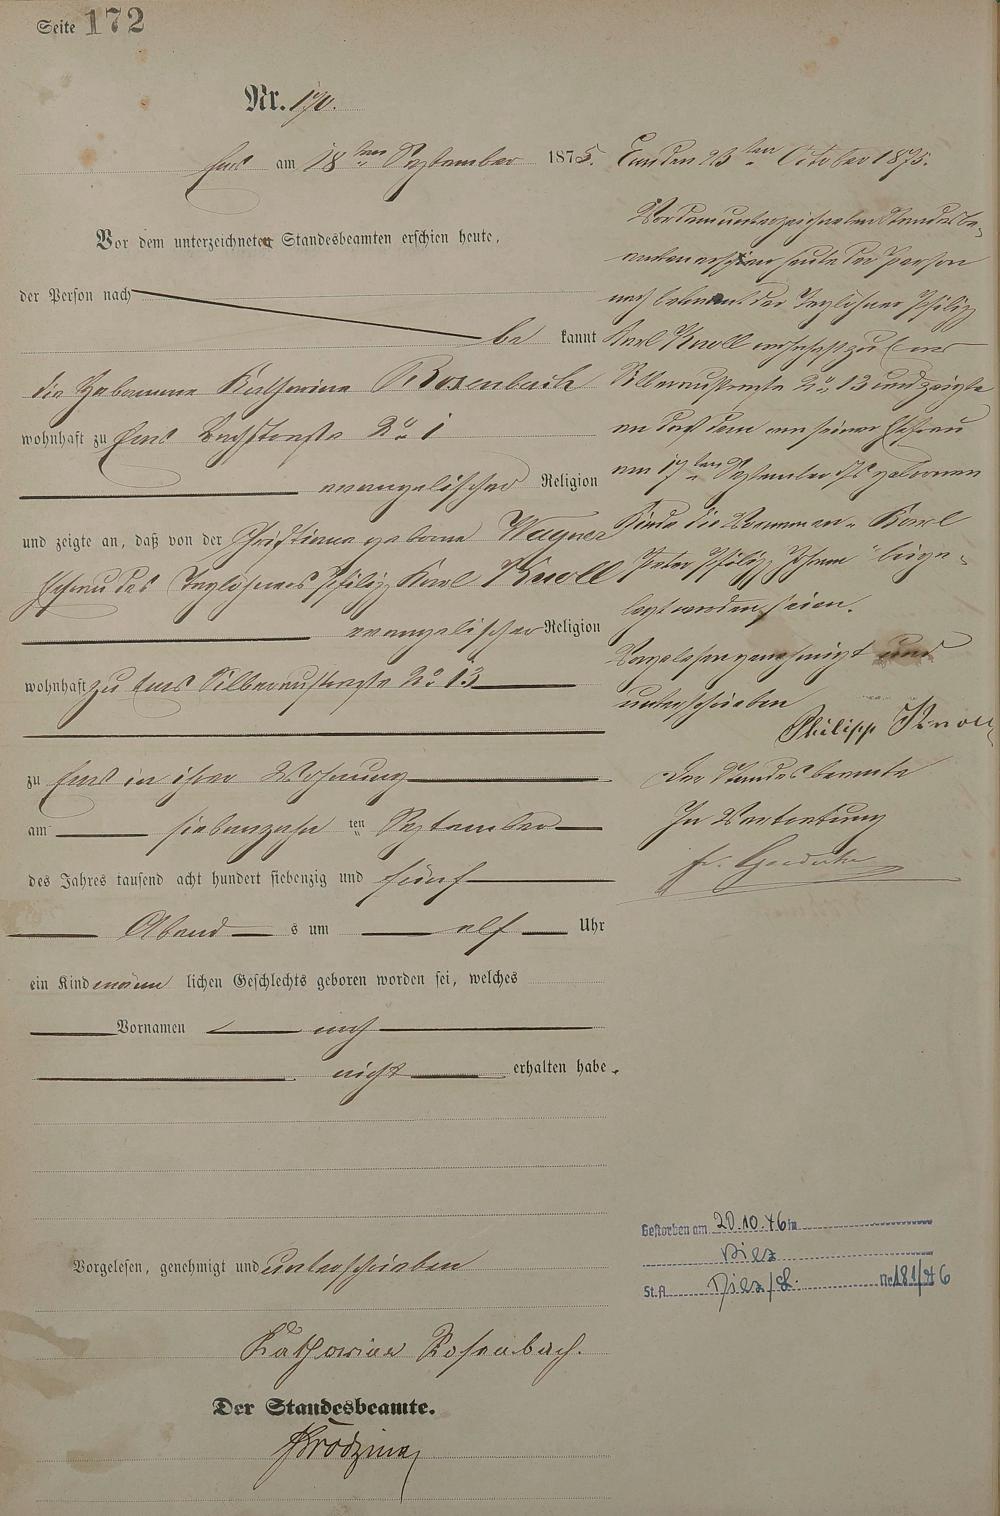 Seite 172
Nr. 190.
Ems am 18ten September 1875.
Vor dem unterzeichneten Standesbeamten erschien heute,
der Person nach
be kannt
die Hebamme Katharina Rosenbach
wohnhaft zu Ems Bachstraße No 1
evangelischer Religion
und zeigte an, daß von der Christiane geborne Wagner
Ehefrau des Taglöhners Philipp Karl Knoll
evangelischer Religion
wohnhaft zu Ems Silberaustraße No 13
zu Ems in ihrer Wohnung
am siebenzehn ten September
des Jahres tausend acht hundert siebenzig und fünf
Abend s um elf Uhr
ein Kind männ lichen Geschlechts geboren worden sei, welches
Vornamen noch
nicht erhalten habe.
Vorgelesen, genehmigt und unterschrieben
Katharina Rosenbach.
Der Standesbeamte.
Brodzina
Ems den 23ten October 1875.
Vor dem unterzeichneten Standesbe-
amten erschien heute der Person
nach bekannt der Taglöhner Philipp
Karl Knoll wohnhaft zu Ems
Silberaustraße No 13 und zeigte
an daß dem von seiner Ehefrau
am 17ten September 75 gebornen
Kinde die Vornamen "Karl
Peter Philipp Johann" beige-
legt worden seien.
Vorgelesen genehmigt und
unterschrieben
Philipp Knoll
Der Standesbeamte
In Vertretung
Gestorben am 20.10.46 in
Diez
St.A. Diez/L. Nr. 181/46